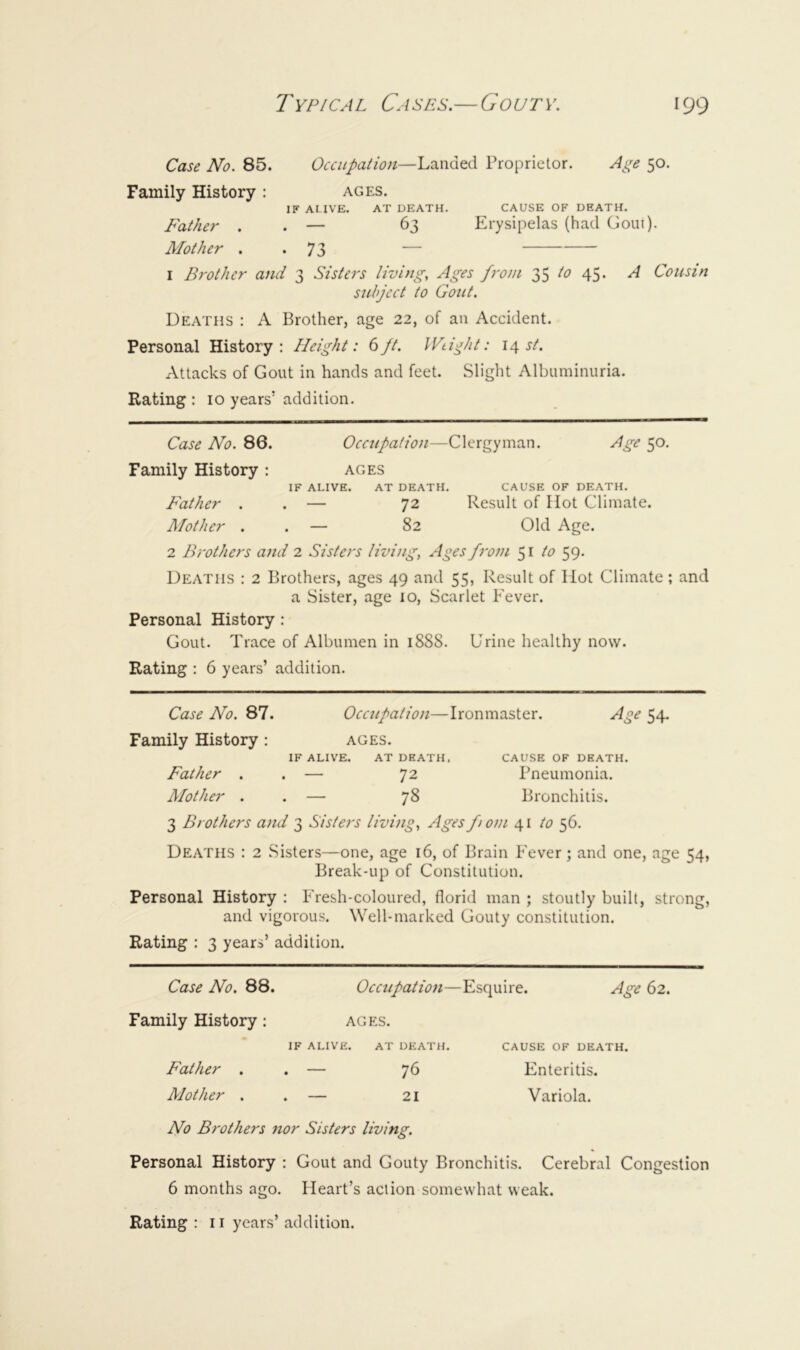 TYPICAL CASES.—GOUTY. 199
Case No. 85. Occupation—Landed Proprietor. Age 50.
Family History : AGES.
IF ALIVE. AT DEATH. CAUSE OF DEATH.
Father . . — 63 Erysipelas (had Gout).
Mother . . 73 — ———
1 Brother and 3 Sisters living, Ages from 35 to 45. A Cousin
subject to Gout.
DEATHS : A Brother, age 22, of an Accident.
Personal History : Height : 6 ft. Weight : 14 st.
Attacks of Gout in hands and feet. Slight Albuminuria.
Rating : 10 years’ addition.
Case No. 86. Occupation—Clergyman. Age 50.
Family History : AGES
IF ALIVE. AT DEATH. CAUSE OF DEATH.
Father . . — 72 Result of Hot Climate.
Mother . . — 82 Old Age.
2 Brothers and 2 Sisters living, Ages from 51 to 59.
DEATHS : 2 Brothers, ages 49 and 55, Result of Hot Climate ; and
a Sister, age 10, Scarlet Fever.
Personal History :
Gout. Trace of Albumen in 1888. Urine healthy now.
Rating : 6 years’ addition.
Case No. 87. Occupation—Ironmaster. Age 54.
Family History : AGES.
IF ALIVE. AT DEATH. CAUSE OF DEATH.
Father . . — 72 Pneumonia.
Mother . . — 78 Bronchitis.
3 Brothers and 3 Sisters living, Ages from 41 to 56.
DEATHS : 2 Sisters—one, age 16, of Brain Fever ; and one, age 54,
Break-up of Constitution.
Personal History : Fresh-coloured, florid man ; stoutly built, strong,
and vigorous. Well-marked Gouty constitution.
Rating : 3 years’ addition.
Case No. 88. Occupation—Esquire. Age 62.
Family History : AGES.
IF ALIVE. AT DEATH. CAUSE OF DEATH.
Father . . — 76 Enteritis.
Mother . . — 21 Variola.
No Brothers nor Sisters living.
Personal History : Gout and Gouty Bronchitis. Cerebral Congestion
6 months ago. Heart’s action somewhat weak.
Rating : 11 years’ addition.